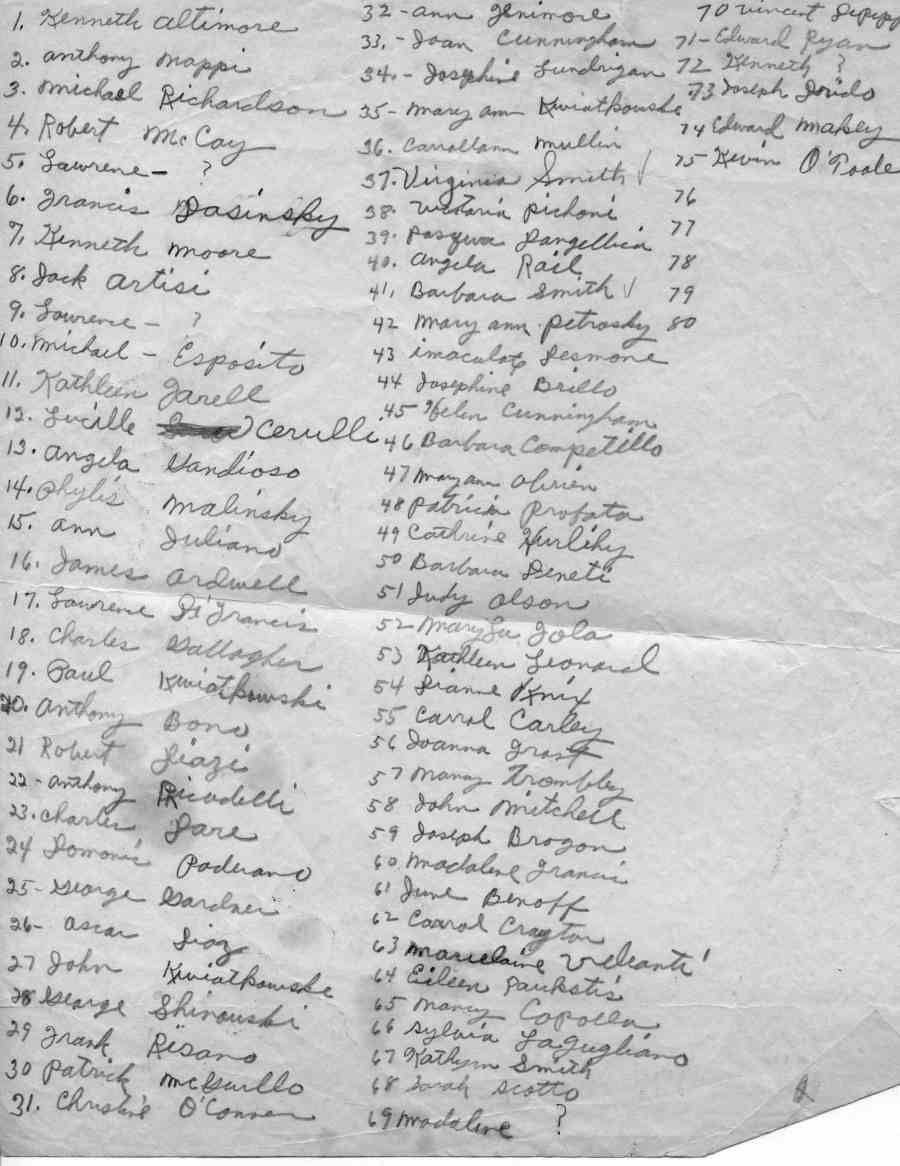 1. Kenneth Altimore
2. Anthony Mappi
3. Michael Richardson
4. Robert McCay
5. Lawrene - ?
6. Francis Dasinsky
7. Kenneth Moore
8. Jack Artisi
9. Lawrence - ?
10. Michael - Esposito
11. Kathleen Farell
12. Lucille Cerulli
13. Angela Gandioso
14. Phylis Malinsky
15. Ann Juliano
16. James Ardwell
17. Lawrence Di'Francis
18. Charles Gallagher
19. Paul Kwiatkowski
20. Anthony Bono
21 Robert
22 - Anthony Picadelli
23. Charles Dare
24 Domonic Paderano
25 - George Gardner
26 - Oscar Diaz
27 John Kwiatkowske
28 George Shinouski
29 Frank Risano
30 Patrick McGuillo
31. Christine O'Conner
32 - Ann Genimore
33. - Joan Cunningham
34. - Josephine Lundrigan
35 - Mary Ann Kwiatkowske
36. Carrollann Mullin
37. Virginia Smith √
38. Victoria Pichoni
39.
40. Angela Rail
41. Barbara Smith √
42 Mary Ann Petrosky
43 Imaculate Desmone
44 Josephine Brillo
45 Helen Cunningham
46 Barbara Competillo
47 Maryann Obrien
48 Patricia Profata
49 Cathrine Hurlihy
50 Barbara Deneti
51 Judy Olson
52 MaryLu Gola
53 Kathleen Leonard
54 Dianne Knix
55 Carrol Carley
56 Joanna Grast
57 Nancy Trombley
58 John Mitchell
59 Joseph Brogon
60 Madalene Francis
61 June Benoff
62 Carrol Crayton
63
64 Eileen Paukstis
65 Nancy Copolla
66 Sylvia LaGugliano
67 Kathlyn Smith
68 Sarah Scotto
69 Madaline ?
70 Vincent
71 - Edward Ryan
72 Kenneth ?
73 Joseph
74 Edward Makey
75 Kevin O'Toole
76
77
78
79
80